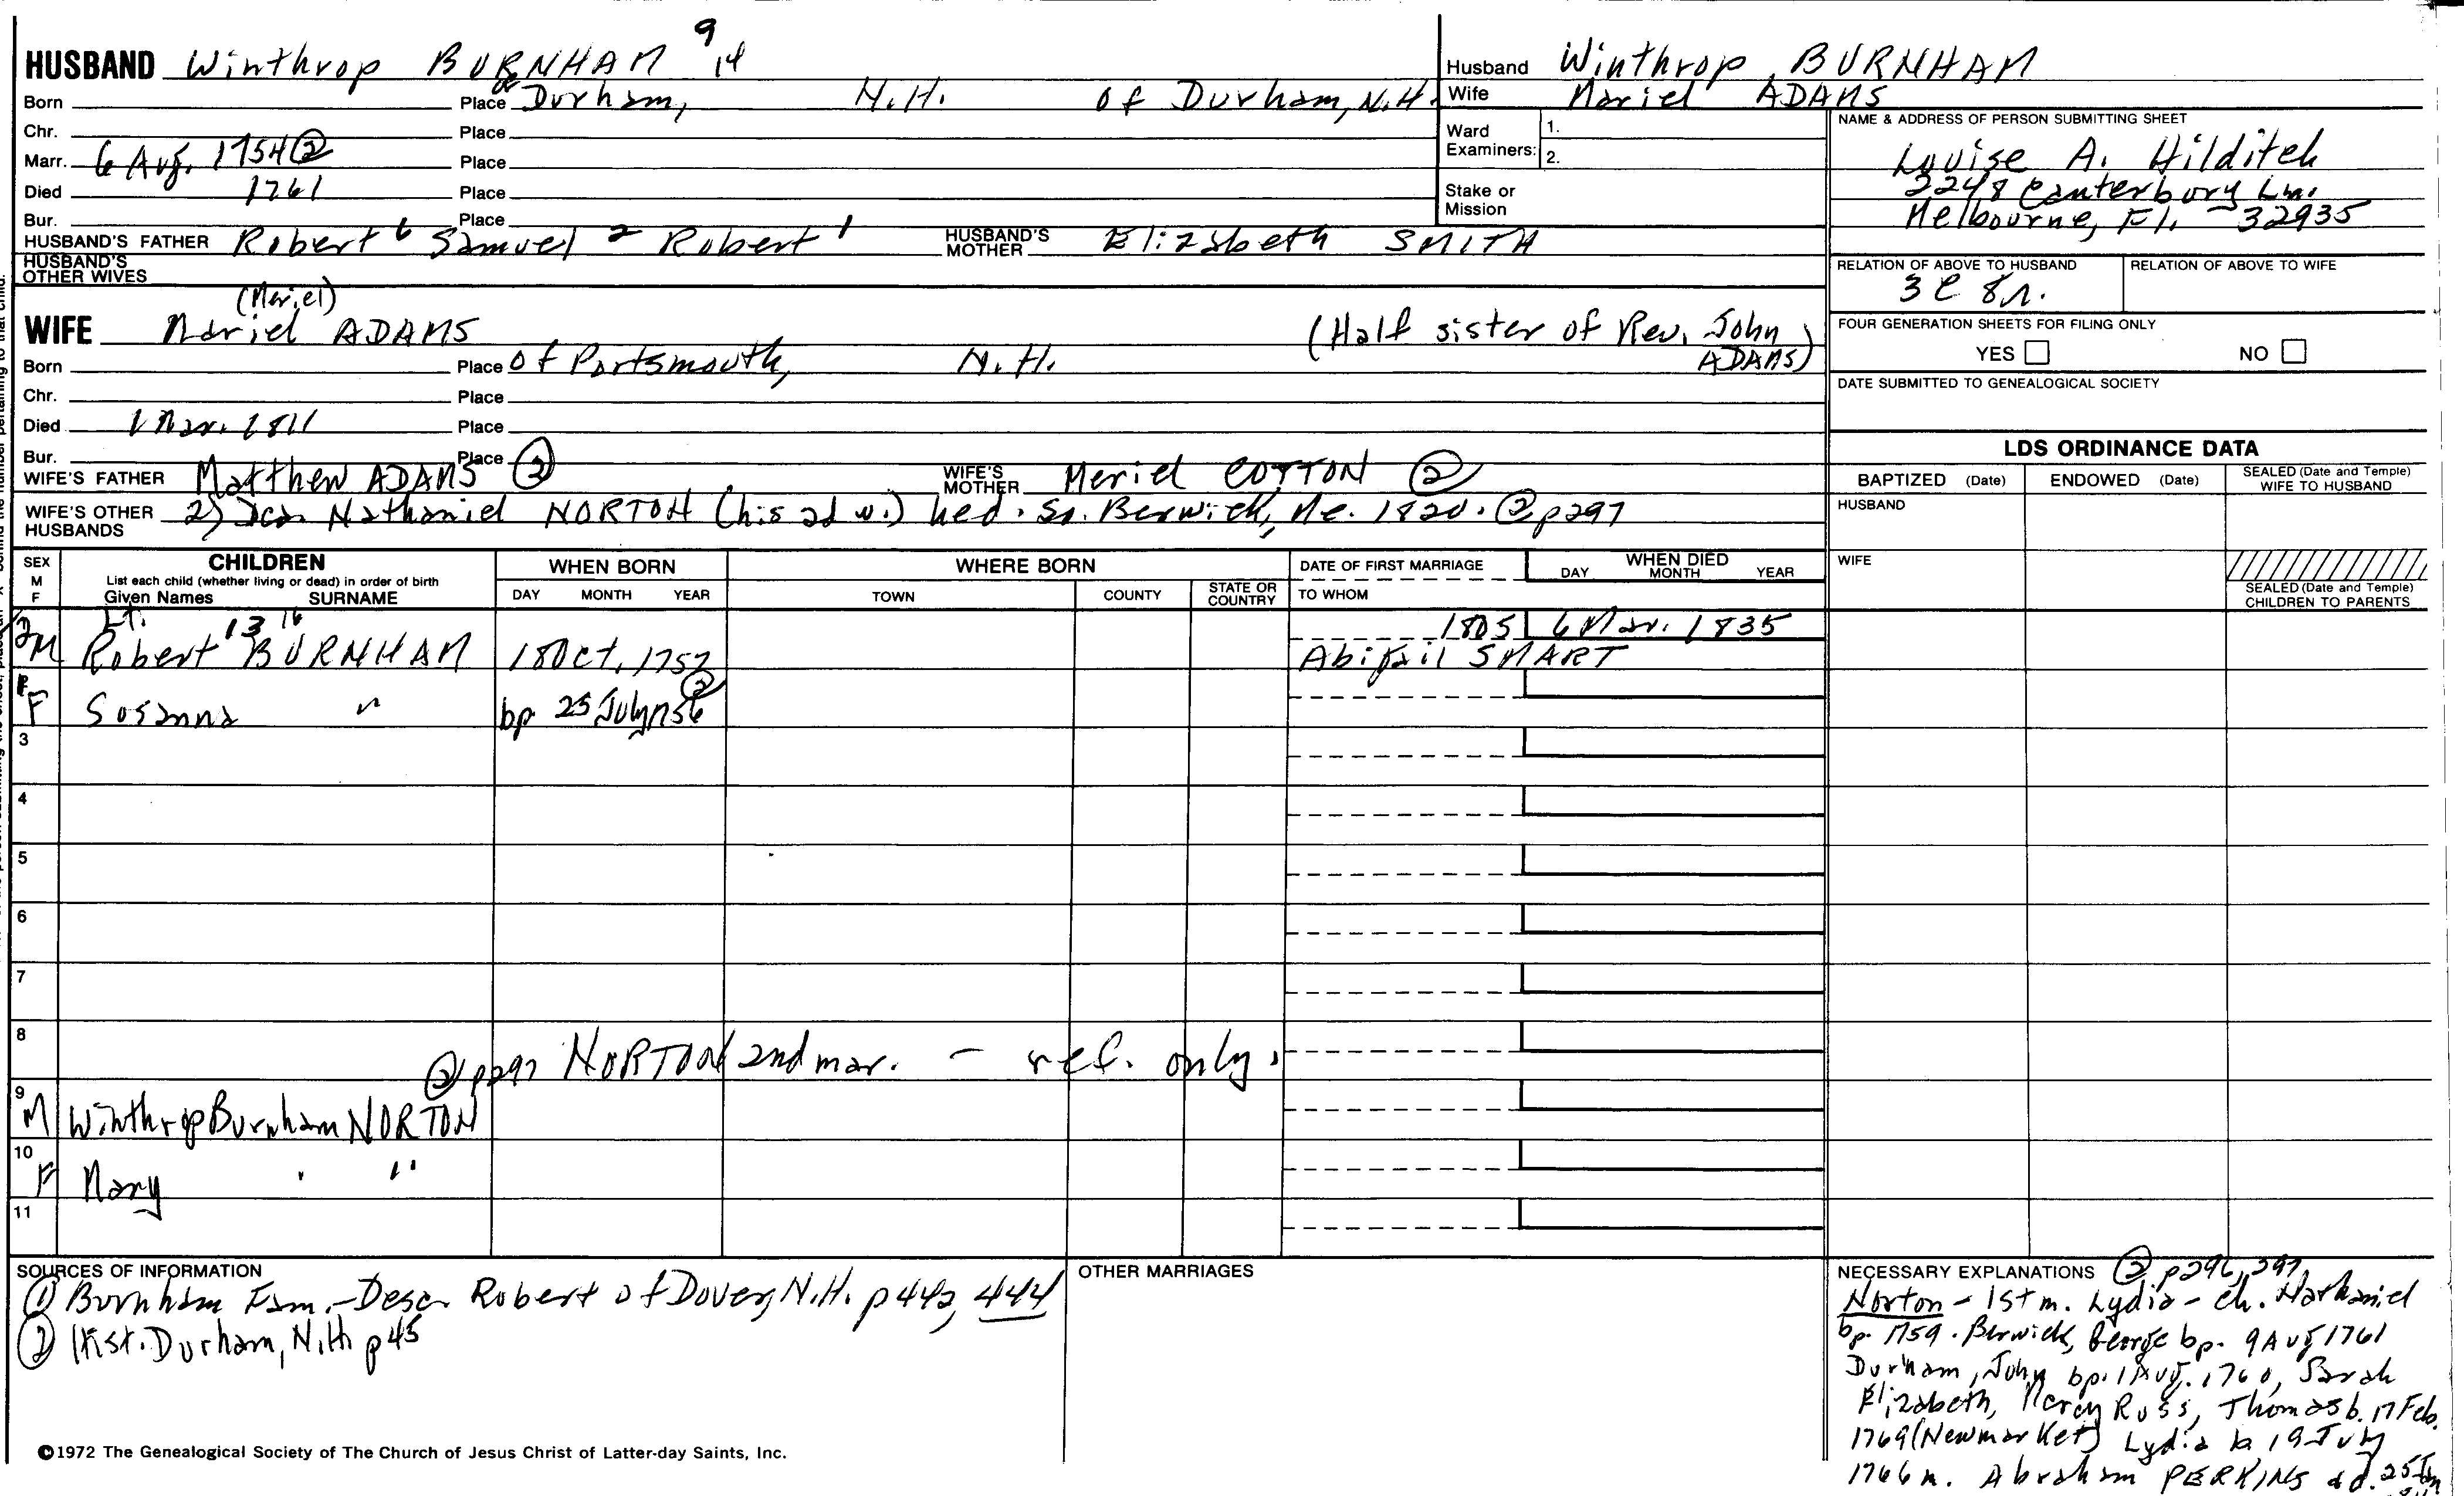 HUSBAND Winthrop BURNHAM 9 14
Born Place of Durham, N.H. of Durham, N.H.
Chr. Place
Marr. 6 Aug. 1754 ② Place
Died 1761 Place
Bur. Place
HUSBAND'S FATHER Robert 6 Samuel 2 Robert 1 HUSBAND'S MOTHER Elizabeth SMITH
HUSBAND'S OTHER WIVES
(Meriel)
WIFE Mariel ADAMS (Half sister of Rev. John ADAMS)
Born Place of Portsmouth, N.H.
Chr. Place
Died 1 Mar. 1811 Place
Bur. Place
WIFE'S FATHER Matthew ADAMS ② WIFE'S MOTHER Meriel COTTON ②
WIFE'S OTHER HUSBANDS 2) Dea. Nathaniel NORTON (his 2d w.) he d. So. Berwick, Me. 1820. ② p297
Husband Winthrop BURNHAM
Wife Mariel ADAMS
Ward Examiners: 1.
2.
Stake or Mission
NAME & ADDRESS OF PERSON SUBMITTING SHEET
Louise A. Hilditch
2248 Canterbury Ln.
Melbourne, Fl. 32935
RELATION OF ABOVE TO HUSBAND RELATION OF ABOVE TO WIFE
3 C 8 r.
FOUR GENERATION SHEETS FOR FILING ONLY
YES NO
DATE SUBMITTED TO GENEALOGICAL SOCIETY
LDS ORDINANCE DATA
BAPTIZED (Date) ENDOWED (Date) SEALED (Date and Temple) WIFE TO HUSBAND
HUSBAND
WIFE
SEALED (Date and Temple) CHILDREN TO PARENTS
SEX M F CHILDREN WHEN BORN WHERE BORN DATE OF FIRST MARRIAGE WHEN DIED
List each child (whether living or dead) in order of birth
Given Names SURNAME DAY MONTH YEAR TOWN COUNTY STATE OR COUNTRY TO WHOM DAY MONTH YEAR
Lt. 13 16 1805 6 Mar. 1835
2 M Robert BURNHAM 18 Oct. 1757 Abigail SMART
F Susanna " bp 25 July 1756 ②
3
4
5
6
7
8
② p297 NORTON 2nd mar. - ref. only.
9
M Winthrop Burnham NORTON
10
F Mary " "
11
SOURCES OF INFORMATION
① Burnham Fam. - Desc. Robert of Dover, N.H. p 442, 444
② Hist. Durham, N.H. p45
OTHER MARRIAGES
NECESSARY EXPLANATIONS ② p296, 297
Norton - 1st m. Lydia - ch. Nathaniel
bp. 1759. Berwick, George bp. 9 Aug 1761
Durham, John bp. 1 Aug. 1760, Sarah
Elizabeth, Mercy Russ, Thomas b. 17 Feb.
1769 (Newmarket) Lydia b 19 July
1766 m. Abraham PERKINS & d. 25 Jan
©1972 The Genealogical Society of The Church of Jesus Christ of Latter-day Saints, Inc.